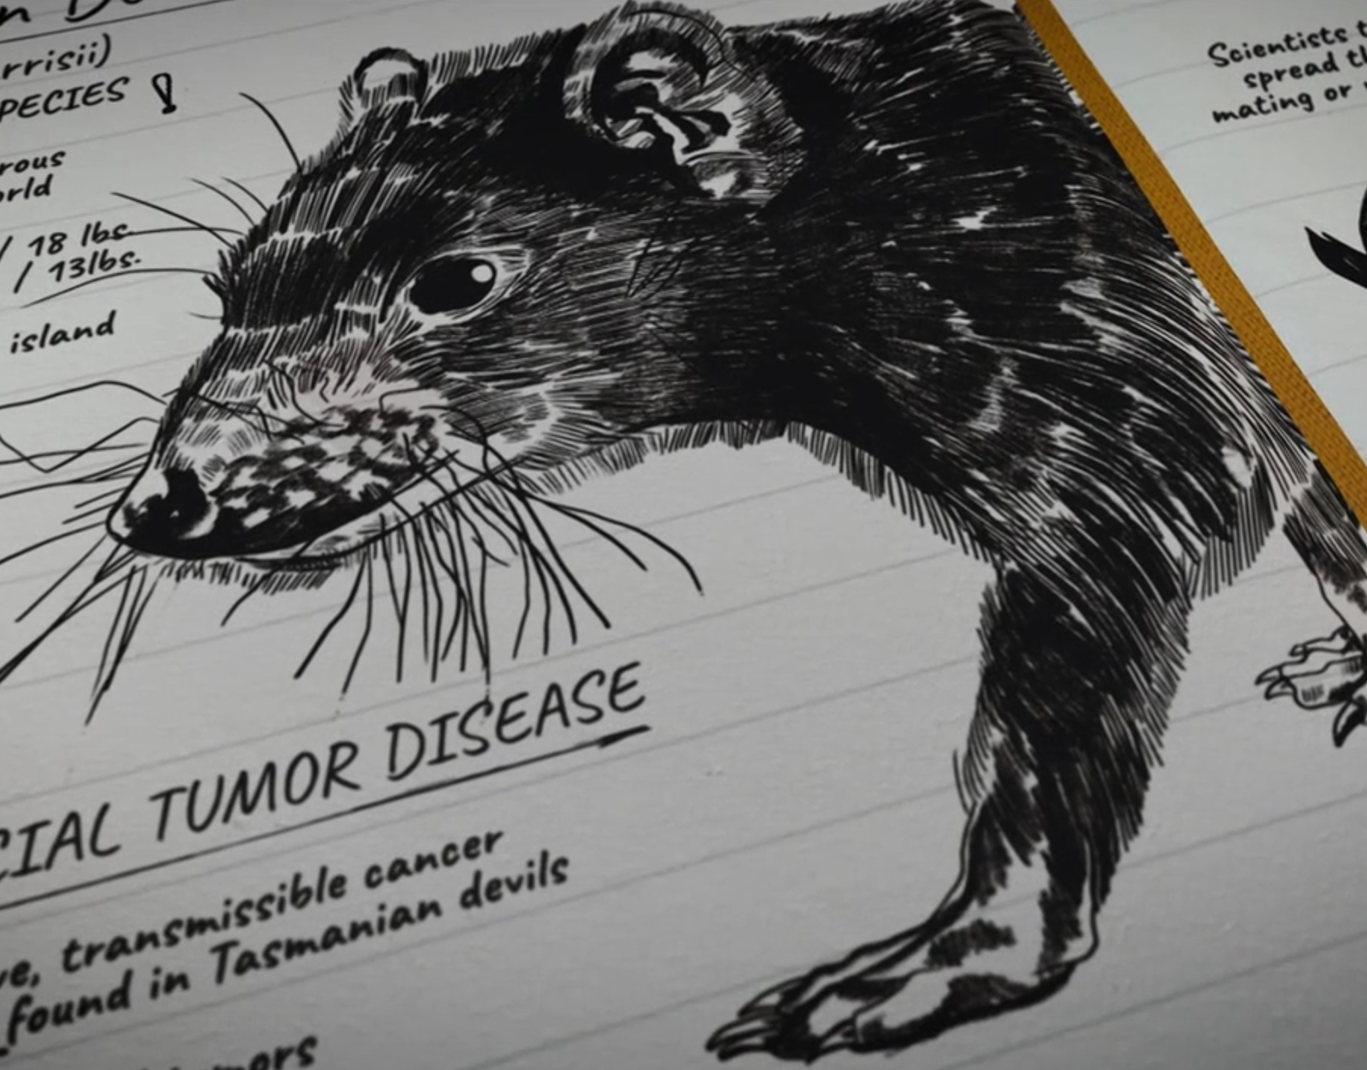 rrisii)
PECIES !
rous
orld
/ 18 lbs.
/ 13lbs.
island
CIAL TUMOR DISEASE
ve, transmissible cancer
found in Tasmanian devils
mors
Scientists t
spread th
mating or